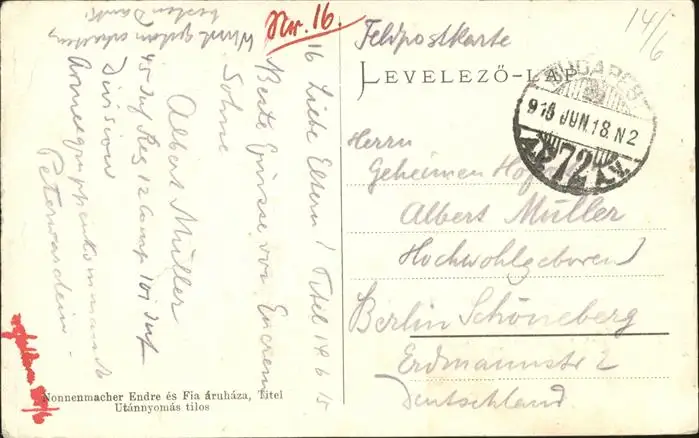 Nr. 16.
Wurst gestern erhalten
besten Dank!
16 Liebe Eltern! Titel 14 6 15
Beste Grüsse von Eurem
Sohne
Albert Müller
45 Inf Reg 12 Comp 101 Inf
Division
Armeegruppenkommando
Peterwardein.
14/6
Feldpostkarte
LEVELEZŐ-LAP
BUDAPEST
915 JUN. 18. N2
72
Herrn
Geheimen
Albert Müller
Hochwohlgeboren
Berlin Schöneberg
Erdmannstr 2
Deutschland
Nonnenmacher Endre és Fia áruháza, Titel
Utánnyomás tilos